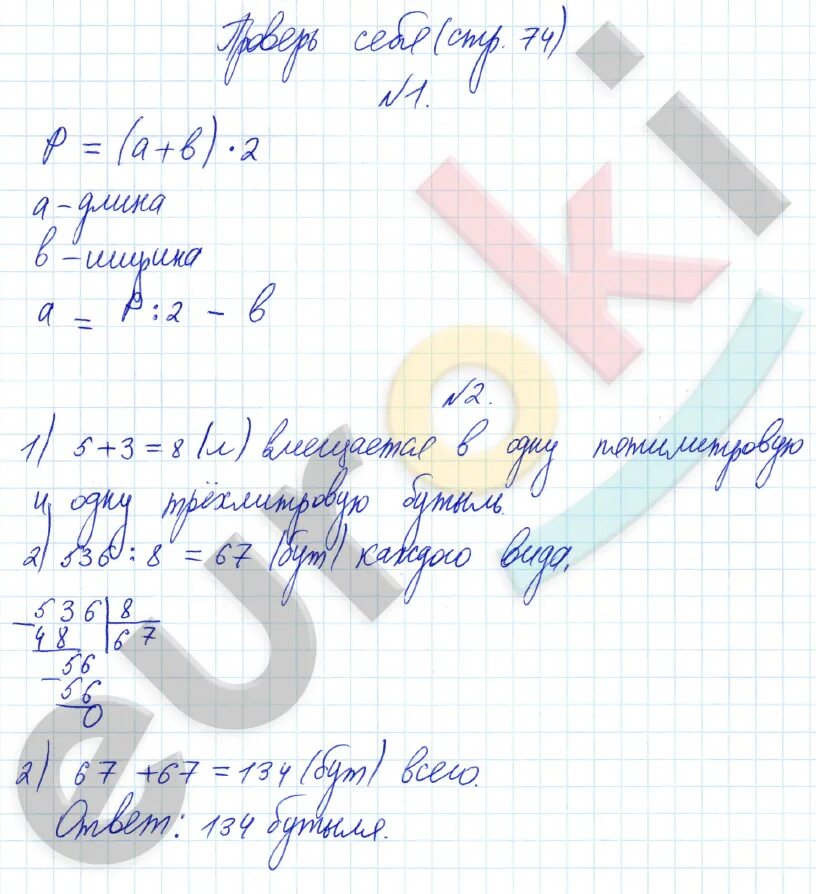 Проверь себя (стр. 74)
№1.
P = (a+в)·2
а - длина
в - ширина
a = P:2 - в
№2.
1) 5+3=8 (л) вмещается в одну пятилитровую
и одну трёхлитровую бутыль.
2) 536 : 8 = 67 (бут) каждого вида.
536 8
48 67
56
56
0
2) 67 +67 = 134 (бут) всего.
Ответ: 134 бутыля.
euroki